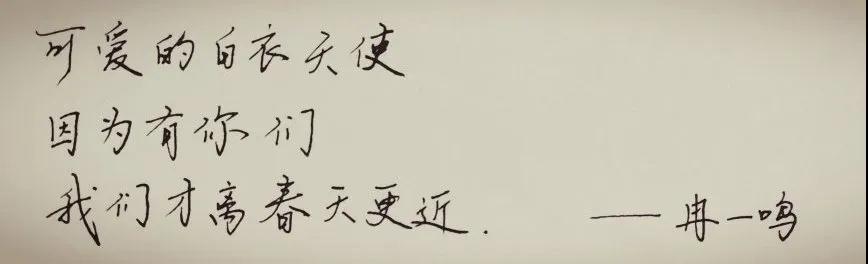 可爱的白衣天使
因为有你们
我们才离春天更近.
——冉一鸣